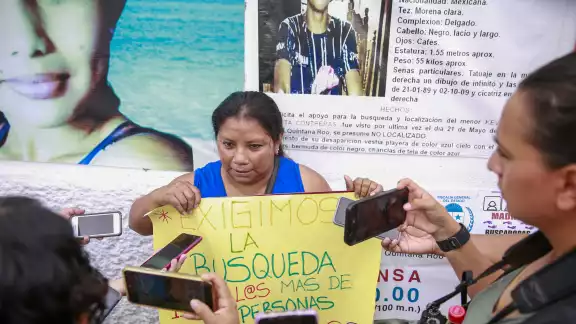 Nacionalidad: Mexicana.
Tez: Morena clara.
Complexion: Delgado.
Cabello: Negro, lacio y largo.
Ojos: Cafes.
Estatura: 1,55 metros aprox.
Peso: 55 kilos aprox.
Senas particulares: Tatuaje en la m
derecha un dibujo de infinito y las
de 21-01-89 y 02-10-09 y cicatriz en
derecha
HECHOS
icita el apoyo para la busqueda y localización del menor KE
TA CONTRERAS fue visto por ultima vez el dia 21 de Mayo
Quintana Roo, se presume NO LOCALIZADO.
de su desaparición vestia playera de color azul cielo con
bermuda de color negro, chanclas de tela de color azul.
FISCALÍA GENERAL
DEL ESTADO
MADR
BUSCADORAS
*EXIGIMOS
LA
BUSQUEDA
L@S MAS DE
PERSONAS
NSA
0.00